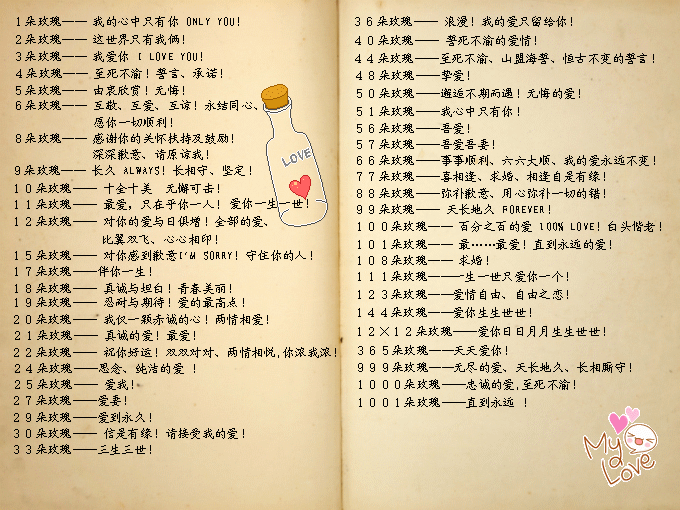 1朵玫瑰—— 我的心中只有你 ONLY YOU!
2朵玫瑰—— 这世界只有我俩!
3朵玫瑰—— 我爱你 I LOVE YOU!
4朵玫瑰—— 至死不渝!誓言、承诺!
5朵玫瑰—— 由衷欣赏!无悔!
6朵玫瑰—— 互敬、互爱、互谅!永结同心、
愿你一切顺利!
8朵玫瑰—— 感谢你的关怀扶持及鼓励!
深深歉意、请原谅我!
9朵玫瑰—— 长久 ALWAYS!长相守、坚定!
10朵玫瑰—— 十全十美 无懈可击!
11朵玫瑰—— 最爱,只在乎你一人!爱你一生一世!
12朵玫瑰—— 对你的爱与日俱增!全部的爱、
比翼双飞、心心相印!
15朵玫瑰—— 对你感到歉意I'M SORRY!守住你的人!
17朵玫瑰——伴你一生!
18朵玫瑰—— 真诚与坦白!青春美丽!
19朵玫瑰—— 忍耐与期待!爱的最高点!
20朵玫瑰—— 我仅一颗赤诚的心!两情相爱!
21朵玫瑰—— 真诚的爱!最爱!
22朵玫瑰—— 祝你好运!双双对对、两情相悦,你浓我浓!
24朵玫瑰——思念、纯洁的爱 !
25朵玫瑰—— 爱我!
27朵玫瑰——爱妻!
29朵玫瑰——爱到永久!
30朵玫瑰—— 信是有缘!请接受我的爱!
33朵玫瑰——三生三世!
LOVE
36朵玫瑰—— 浪漫!我的爱只留给你!
40朵玫瑰—— 誓死不渝的爱情!
44朵玫瑰——至死不渝、山盟海誓、恒古不变的誓言!
48朵玫瑰——挚爱!
50朵玫瑰——邂逅不期而遇!无悔的爱!
51朵玫瑰——我心中只有你!
56朵玫瑰——吾爱!
57朵玫瑰——吾爱吾妻!
66朵玫瑰——事事顺利、六六大顺、我的爱永远不变!
77朵玫瑰——喜相逢、求婚、相逢自是有缘!
88朵玫瑰——弥补歉意、用心弥补一切的错!
99朵玫瑰—— 天长地久 FOREVER!
100朵玫瑰—— 百分之百的爱 100% LOVE!白头偕老!
101朵玫瑰—— 最……最爱!直到永远的爱!
108朵玫瑰—— 求婚!
111朵玫瑰——一生一世只爱你一个!
123朵玫瑰——爱情自由、自由之恋!
144朵玫瑰——爱你生生世世!
12×12朵玫瑰——爱你日日月月生生世世!
365朵玫瑰——天天爱你!
999朵玫瑰——无尽的爱、天长地久、长相厮守!
1000朵玫瑰——忠诚的爱,至死不渝!
1001朵玫瑰——直到永远 !
My Love